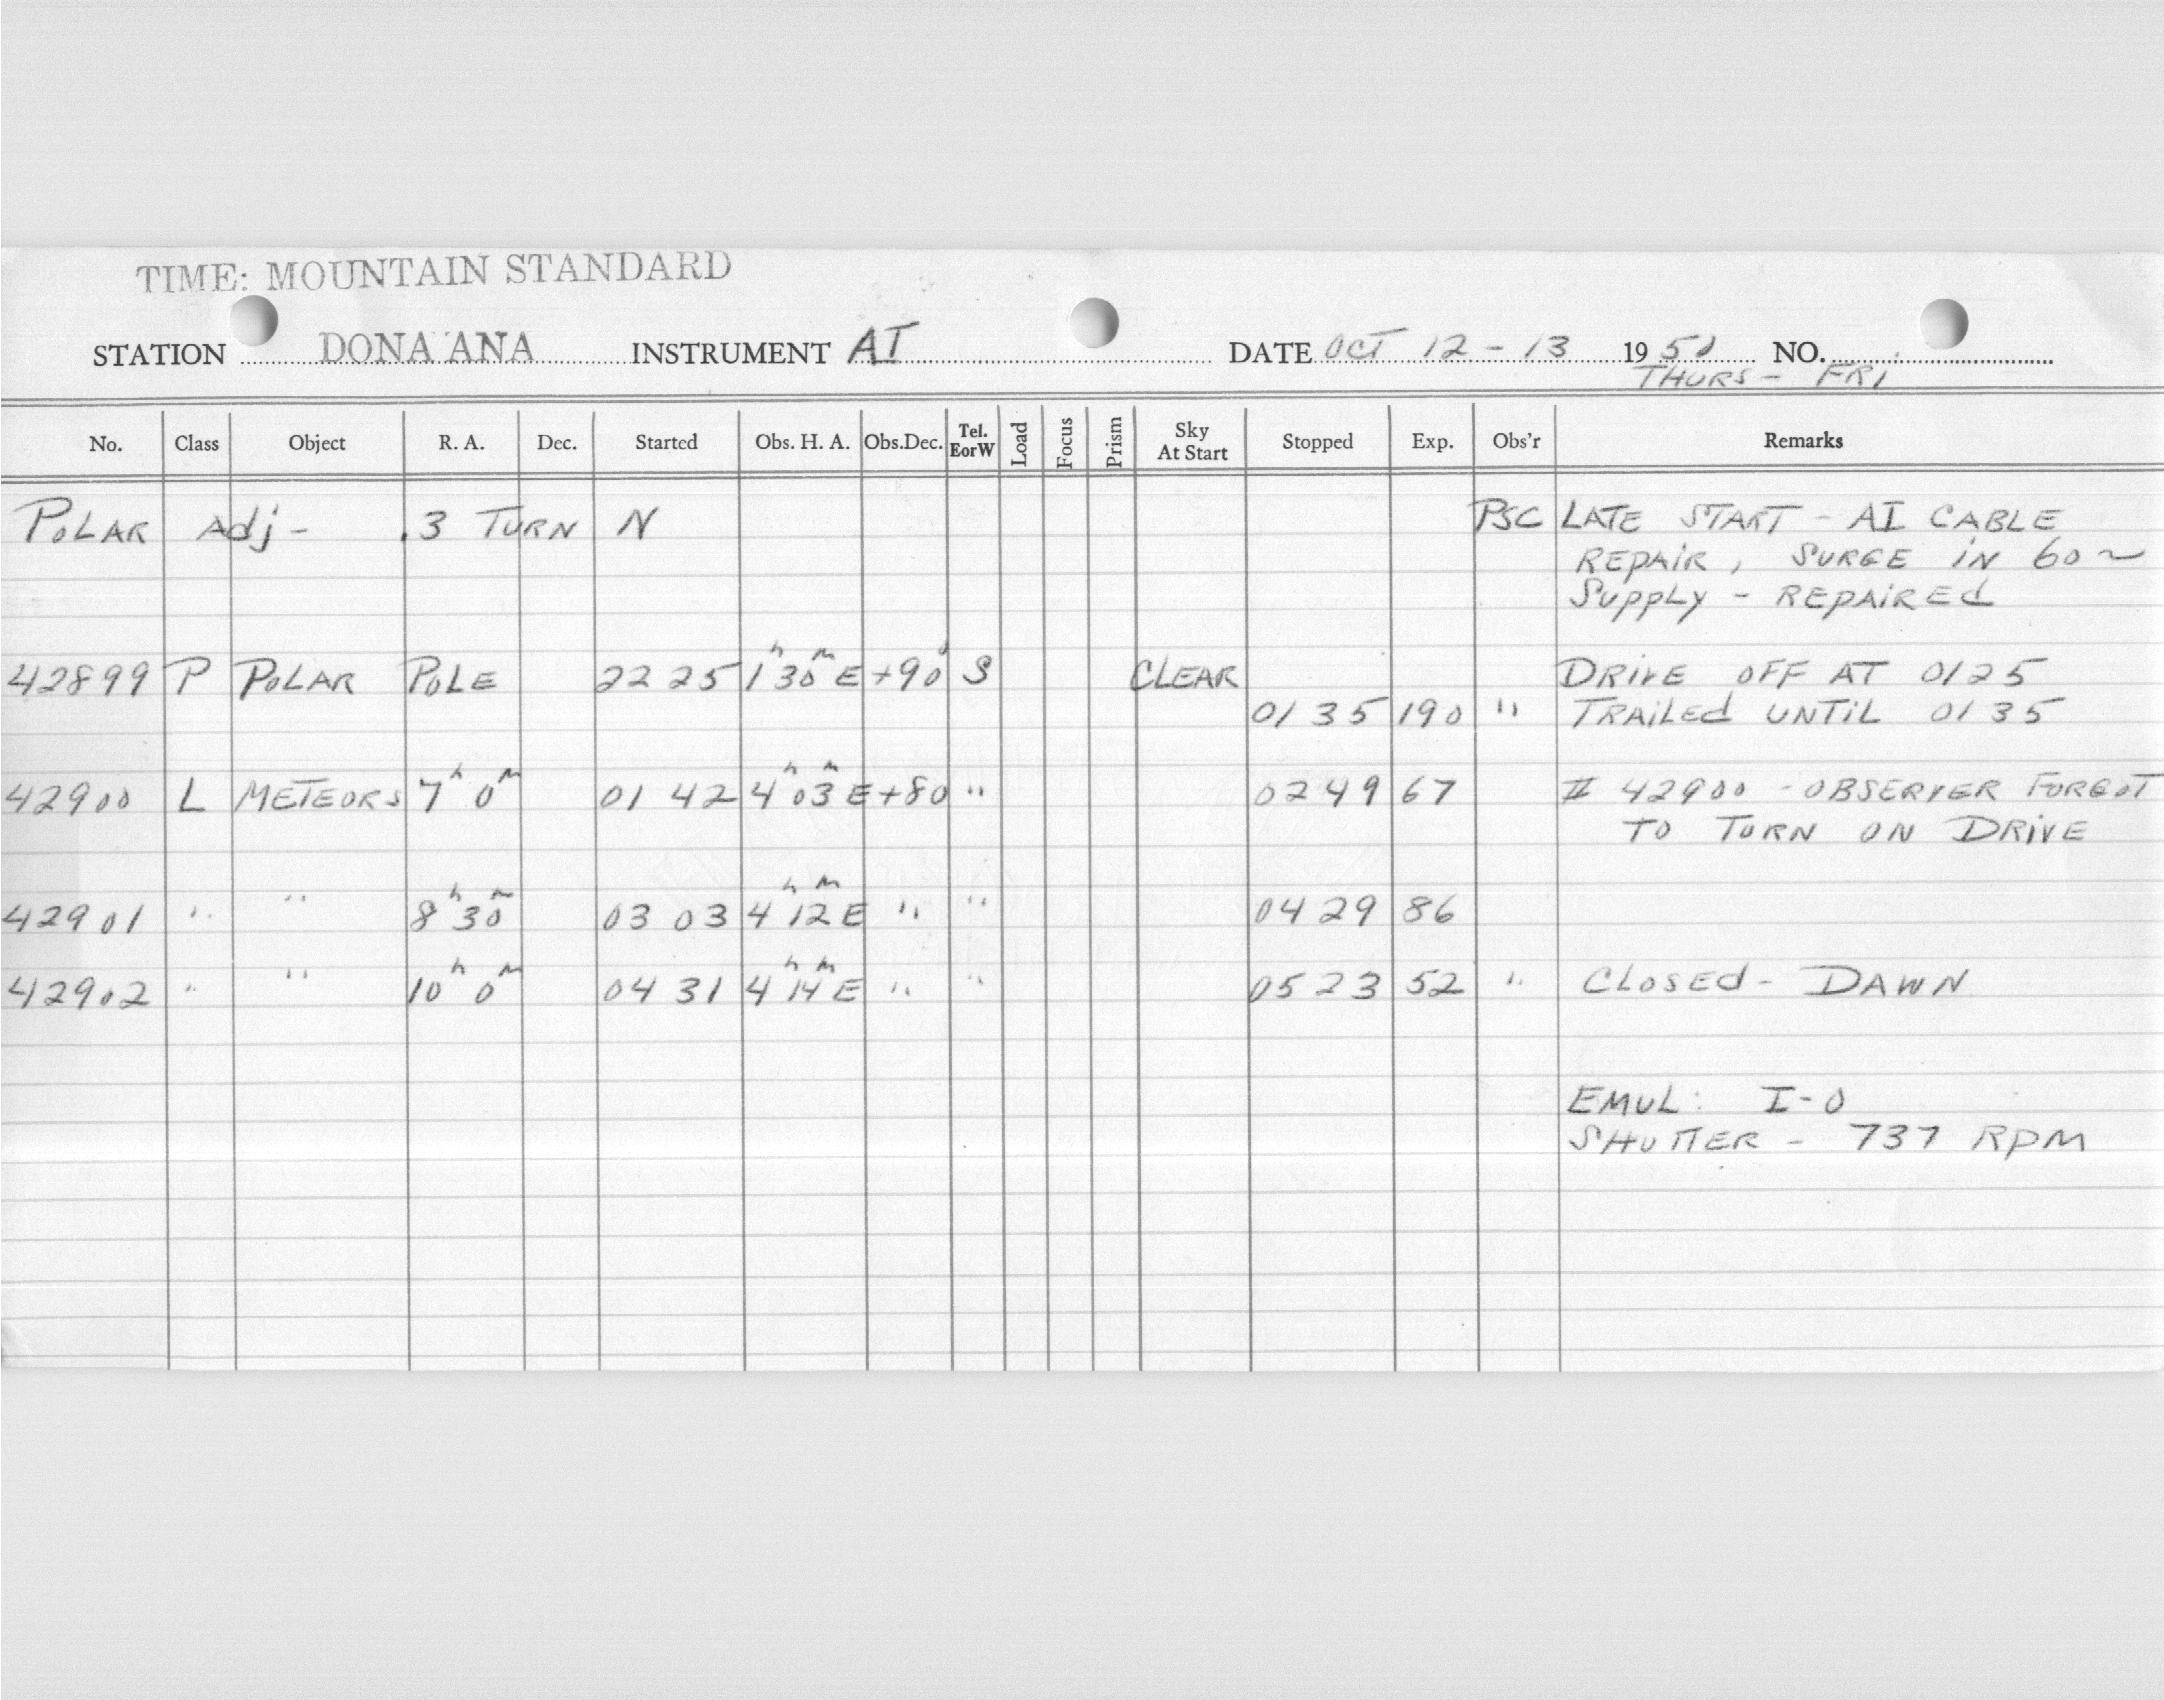 TIME: MOUNTAIN STANDARD
STATION DONA ANA INSTRUMENT AI DATE OCT 12 - 13 1950 NO.
THURS - FRI
No. Class Object R. A. Dec. Started Obs. H. A. Obs.Dec. Tel. EorW Load Focus Prism Sky At Start Stopped Exp. Obs'r Remarks
POLAR Adj - .3 TURN N PSC LATE START - AI CABLE
REPAIR, SURGE IN 60~
SUPPLY - REPAIRED
42899 P POLAR POLE 22 25 1h 30m E +90° S CLEAR DRIVE OFF AT 0125
01 35 190 " TRAILED UNTIL 0135
42900 L METEORS 7h 0m 01 42 4h 03m E +80 " 02 49 67 # 42900 - OBSERVER FORGOT
TO TURN ON DRIVE
42901 " " 8h 30m 03 03 4h 12m E " " 04 29 86
42902 " " 10h 0m 04 31 4h 14m E " " 05 23 52 " CLOSED - DAWN
EMUL: I-O
SHUTTER - 737 RPM